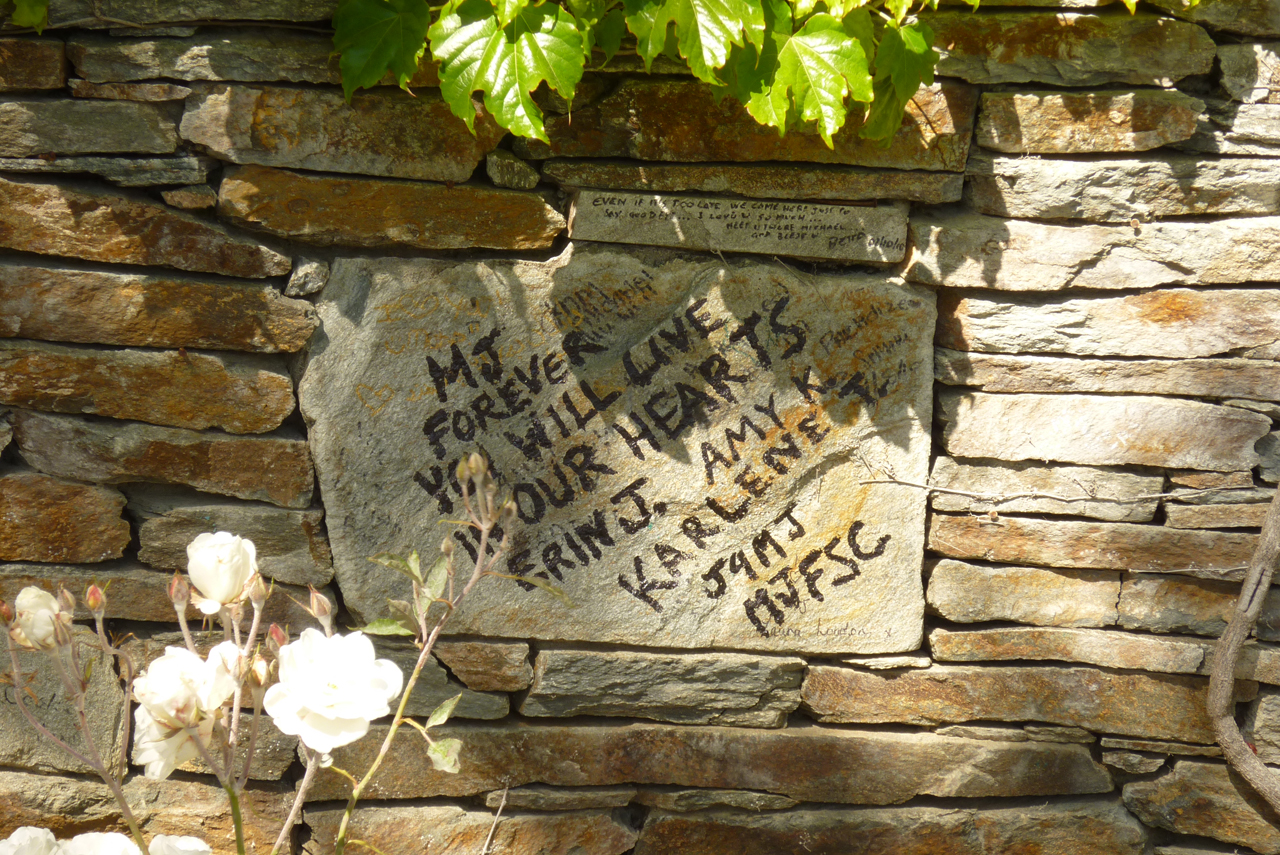 EVEN IF IT'S TOO LATE WE COME HERE JUST TO
SAY GOODBY... I LOVE U SO MUCH...
REST U THERE MICHAEL
GOD BLESS U
MJ
FOREVER
YOU WILL LIVE
IN OUR HEARTS
ERIN J. AMY K.
KARLENE T
J4MJ
MJFSC
London x